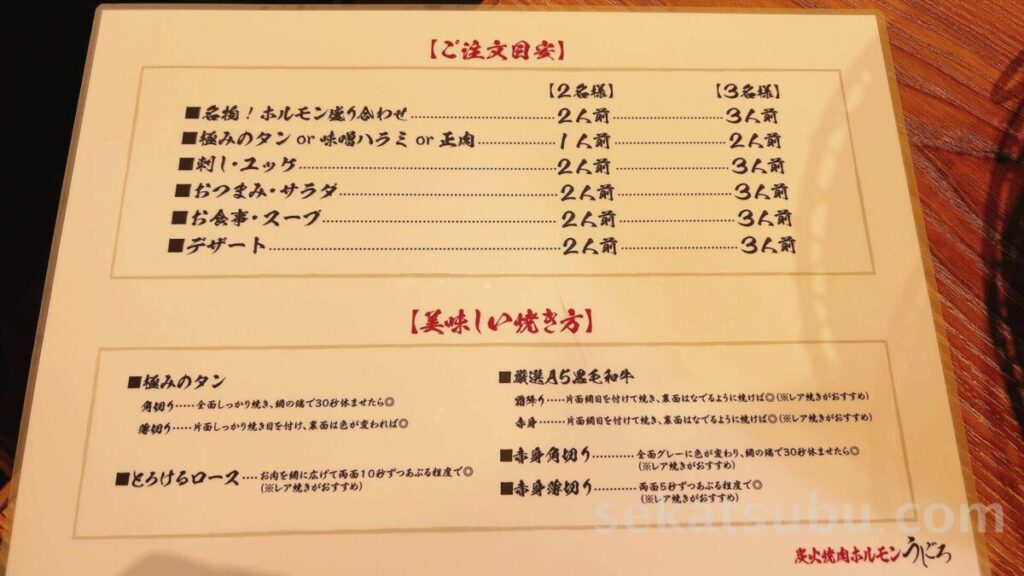 【ご注文目安】
【2名様】 【3名様】
■名物！ホルモン盛り合わせ 2人前 3人前
■極みのタン or 味噌ハラミ or 正肉 1人前 2人前
■刺し・ユッケ 2人前 3人前
■おつまみ・サラダ 2人前 3人前
■お食事・スープ 2人前 3人前
■デザート 2人前 3人前
【美味しい焼き方】
■極みのタン
角切り……全面しっかり焼き、網の端で30秒休ませたら◎
薄切り……片面しっかり焼き目を付け、裏面は色が変われば◎
■とろけるロース……お肉を網に広げて両面10秒ずつあぶる程度で◎
（※レア焼きがおすすめ）
■厳選A5黒毛和牛
霜降り……片面網目を付けて焼き、裏面はなでるように焼けば◎（※レア焼きがおすすめ）
赤身……片面網目を付けて焼き、裏面はなでるように焼けば◎（※レア焼きがおすすめ）
■赤身角切り……全面グレーに色が変わり、網の端で30秒休ませたら◎
（※レア焼きがおすすめ）
■赤身薄切り……両面5秒ずつあぶる程度で◎
（※レア焼きがおすすめ）
sekatsubu.com
炭火焼肉ホルモン うしごろ